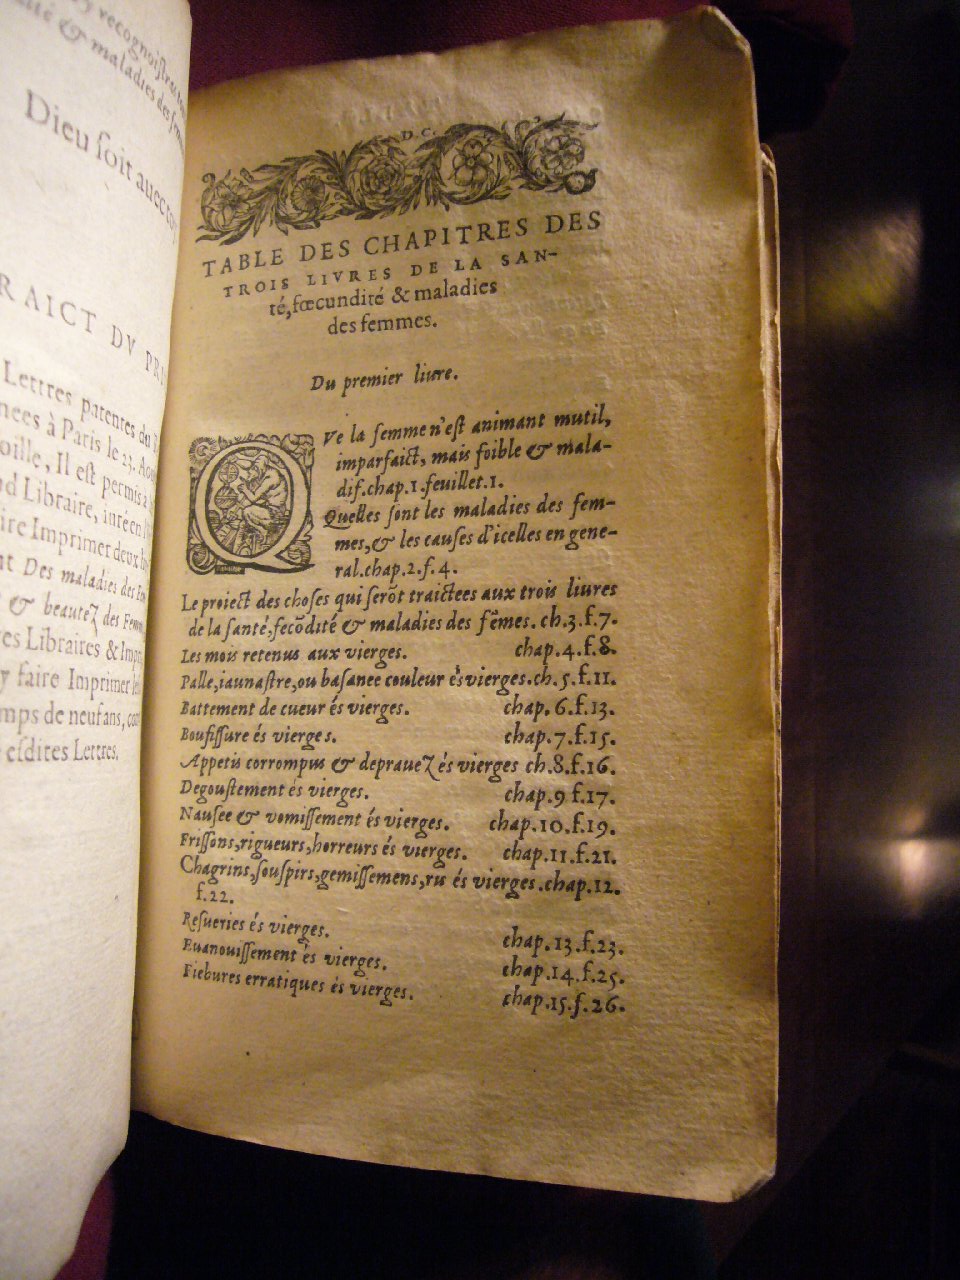 y recognoistra
& maladies des fem
Dieu soit auec toy
RAICT DV PRI
Lettres patentes du
nees à Paris le 23. Aou
oille, Il est permis
Libraire, iuré en
ire Imprimer deux
t Des maladies des
& beautez des Femm
res Libraires & Impri
y faire Imprimer
mps de neuf ans, com
esdites Lettres.
D.C.
TABLE DES CHAPITRES DES
TROIS LIVRES DE LA SAN-
té, fœcundité & maladies
des femmes.
Du premier liure.
QVe la femme n'est animant mutil,
imparfaict, mais foible & mala-
dif.chap.1.feuillet.1.
Quelles sont les maladies des fem-
mes, & les causes d'icelles en gene-
ral.chap.2.f.4.
Le proiect des choses qui serõt traictees aux trois liures
de la santé, fecõdité & maladies des fẽmes. ch.3.f.7.
Les mois retenus aux vierges. chap.4.f.8.
Palle, iaunastre, ou basanee couleur és vierges.ch.5.f.11.
Battement de cueur és vierges. chap.6.f.13.
Bouffissure és vierges. chap.7.f.15.
Appetis corrompus & deprauez és vierges ch.8.f.16.
Degoustement és vierges. chap.9 f.17.
Nausee & vomissement és vierges. chap.10.f.19.
Frissons, rigueurs, horreurs és vierges. chap.11.f.21.
Chagrins, souspirs, gemissemens, ris és vierges.chap.12.
f.22.
Resueries és vierges. chap.13.f.23.
Euanouissement és vierges. chap.14.f.25.
Fiebures erratiques és vierges. chap.15.f.26.